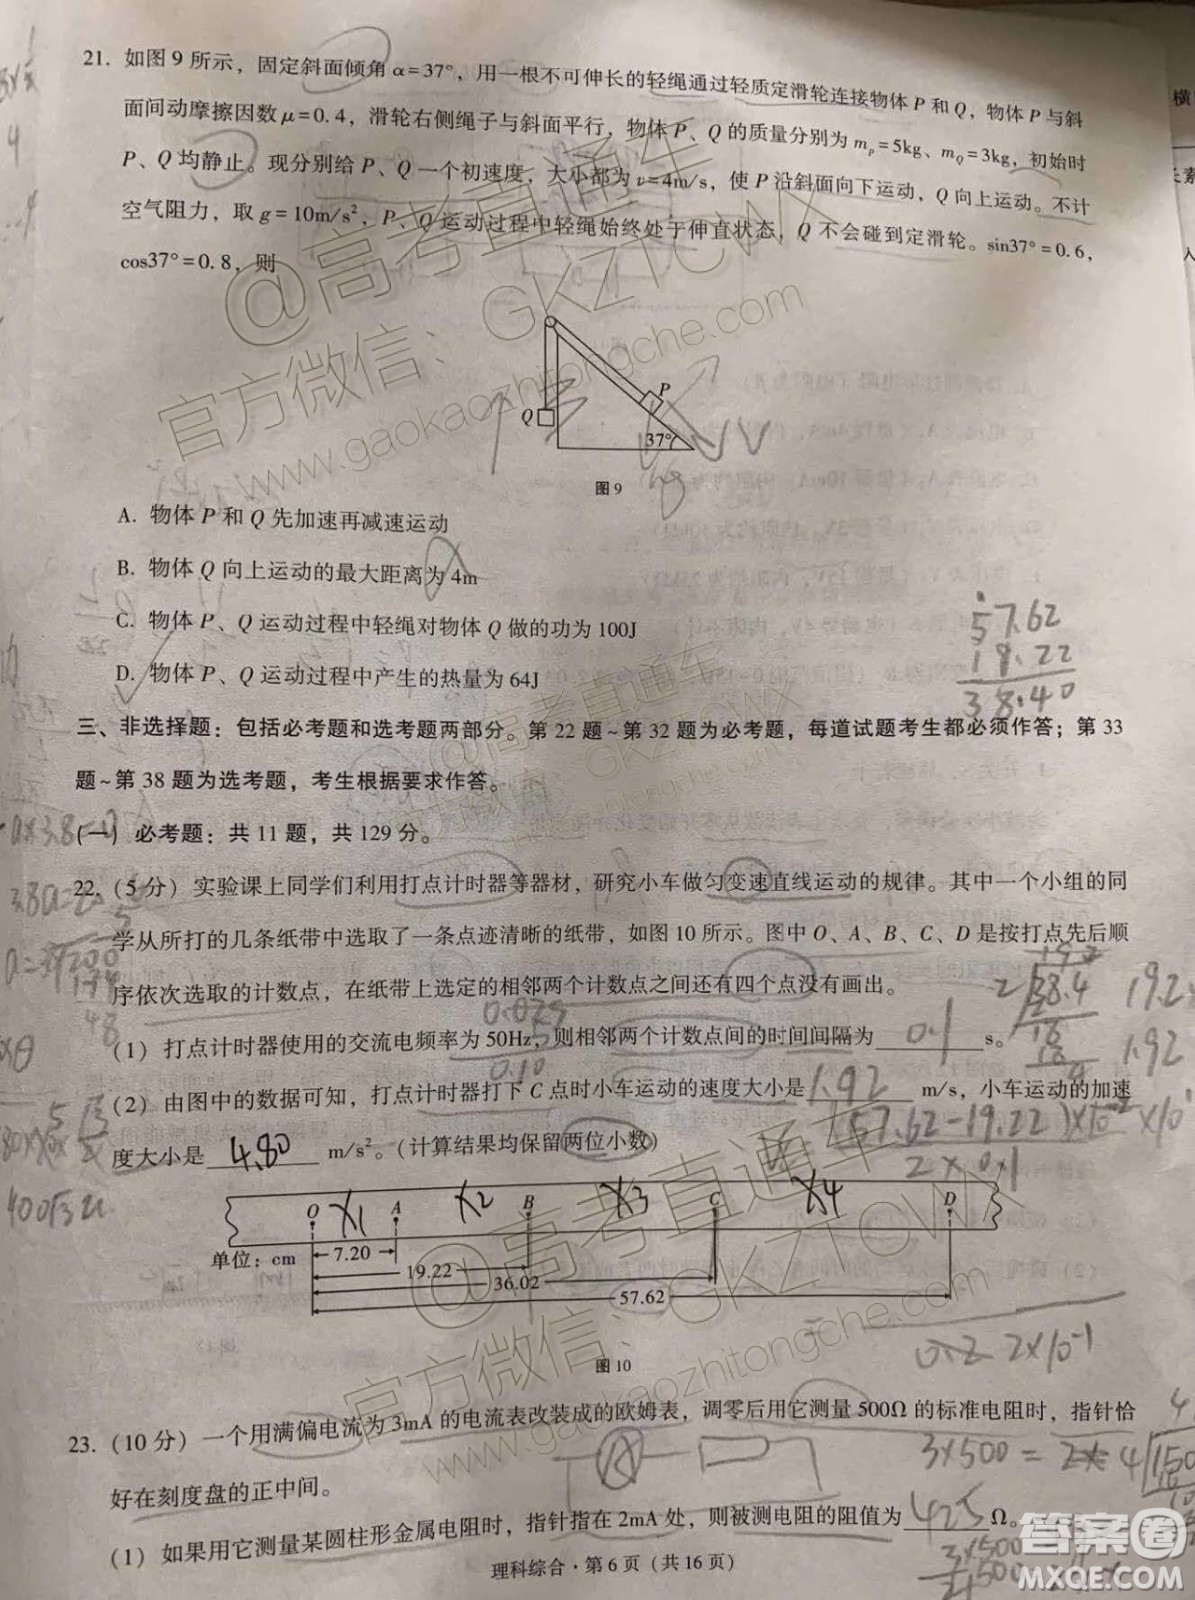 21. 如图 9 所示，固定斜面倾角 α=37°，用一根不可伸长的轻绳通过轻质定滑轮连接物体 P 和 Q，物体 P 与斜
面间动摩擦因数 μ=0.4，滑轮右侧绳子与斜面平行，物体 P、Q 的质量分别为 mp=5kg、mQ=3kg，初始时
P、Q 均静止。现分别给 P、Q 一个初速度，大小都为 v=4m/s，使 P 沿斜面向下运动，Q 向上运动。不计
空气阻力，取 g=10m/s²，P、Q 运动过程中轻绳始终处于伸直状态，Q 不会碰到定滑轮。sin37°=0.6，
cos37°=0.8，则
P
Q
37°
图 9
A. 物体 P 和 Q 先加速再减速运动
B. 物体 Q 向上运动的最大距离为 4m
C. 物体 P、Q 运动过程中轻绳对物体 Q 做的功为 100J
D. 物体 P、Q 运动过程中产生的热量为 64J
57.62
19.22
38.40
三、非选择题：包括必考题和选考题两部分。第 22 题~第 32 题为必考题，每道试题考生都必须作答；第 33
题~第 38 题为选考题，考生根据要求作答。
(一) 必考题：共 11 题，共 129 分。
22. (5 分) 实验课上同学们利用打点计时器等器材，研究小车做匀变速直线运动的规律。其中一个小组的同
学从所打的几条纸带中选取了一条点迹清晰的纸带，如图 10 所示。图中 O、A、B、C、D 是按打点先后顺
序依次选取的计数点，在纸带上选定的相邻两个计数点之间还有四个点没有画出。
(1) 打点计时器使用的交流电频率为 50Hz，则相邻两个计数点间的时间间隔为 0.1 s。
(2) 由图中的数据可知，打点计时器打下 C 点时小车运动的速度大小是 1.92 m/s，小车运动的加速
(57.62-19.22)×10⁻²
2×0.1
度大小是 4.80 m/s²。(计算结果均保留两位小数)
O X1 A X2 B X3 C X4 D
单位：cm
7.20
19.22
36.02
57.62
图 10
0.2 2×10⁻¹
23. (10 分) 一个用满偏电流为 3mA 的电流表改装成的欧姆表，调零后用它测量 500Ω 的标准电阻时，指针恰
好在刻度盘的正中间。
(1) 如果用它测量某圆柱形金属电阻时，指针指在 2mA 处，则被测电阻的阻值为 Ω。
理科综合·第 6 页（共 16 页）
@高考直通车
官方微信：GKZTCWX
www.gaokaozhitongche.com
@高考直通车
官方微信：GKZTCWX
www.gaokaozhitongche.com
答案圈
MXQE.COM